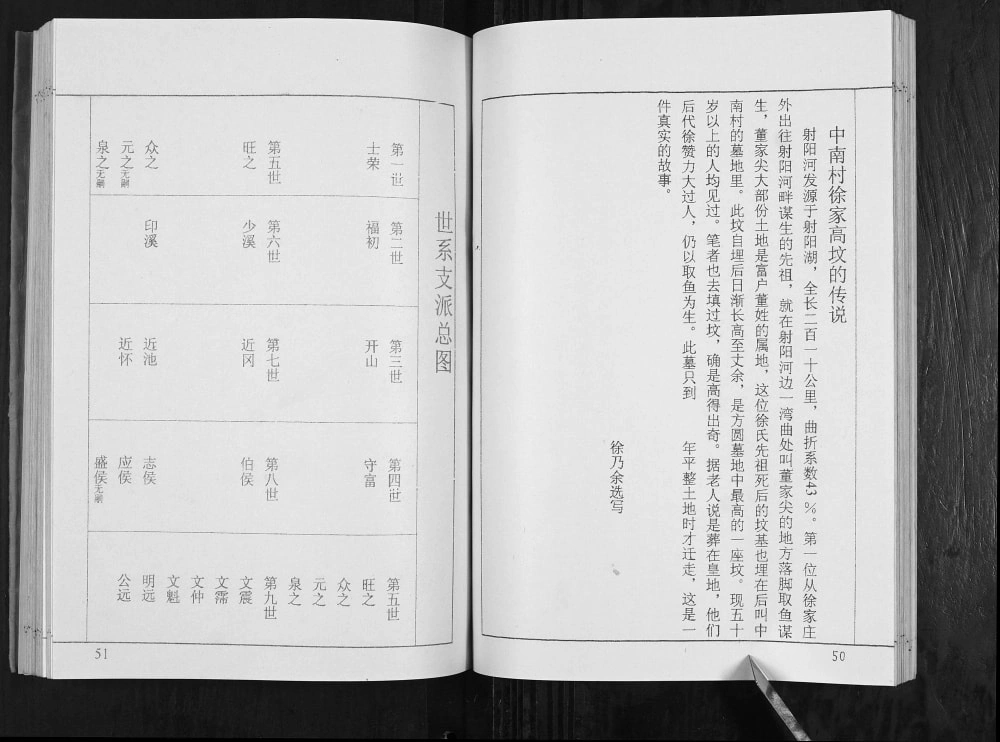 中南村徐家高坟的传说
射阳河发源于射阳湖，全长二百一十公里，曲折系数43%。第一位从徐家庄
外出往射阳河畔谋生的先祖，就在射阳河边一湾曲处叫董家尖的地方落脚取鱼谋
生，董家尖大部份土地是富户董姓的属地，这位徐氏先祖死后的坟基也埋在后叫中
南村的墓地里。此坟自埋后日渐长高至丈余，是方圆墓地中最高的一座坟。现五十
岁以上的人均见过。笔者也去填过坟，确是高得出奇。据老人说是葬在皇地，他们
后代徐赞力大过人，仍以取鱼为生。此墓只到 年平整土地时才迁走，这是一
件真实的故事。
徐乃余选写
50
世系支派总图
第一世
士荣
第五世
旺之
众之
元之无嗣
泉之无嗣
第二世
福初
第六世
少溪
印溪
第三世
开山
第七世
近冈
近池
近怀
第四世
守富
第八世
伯侯
志侯
应侯
盛侯无嗣
第五世
旺之
众之
元之
泉之
第九世
文震
文霈
文仲
文魁
明远
公远
51